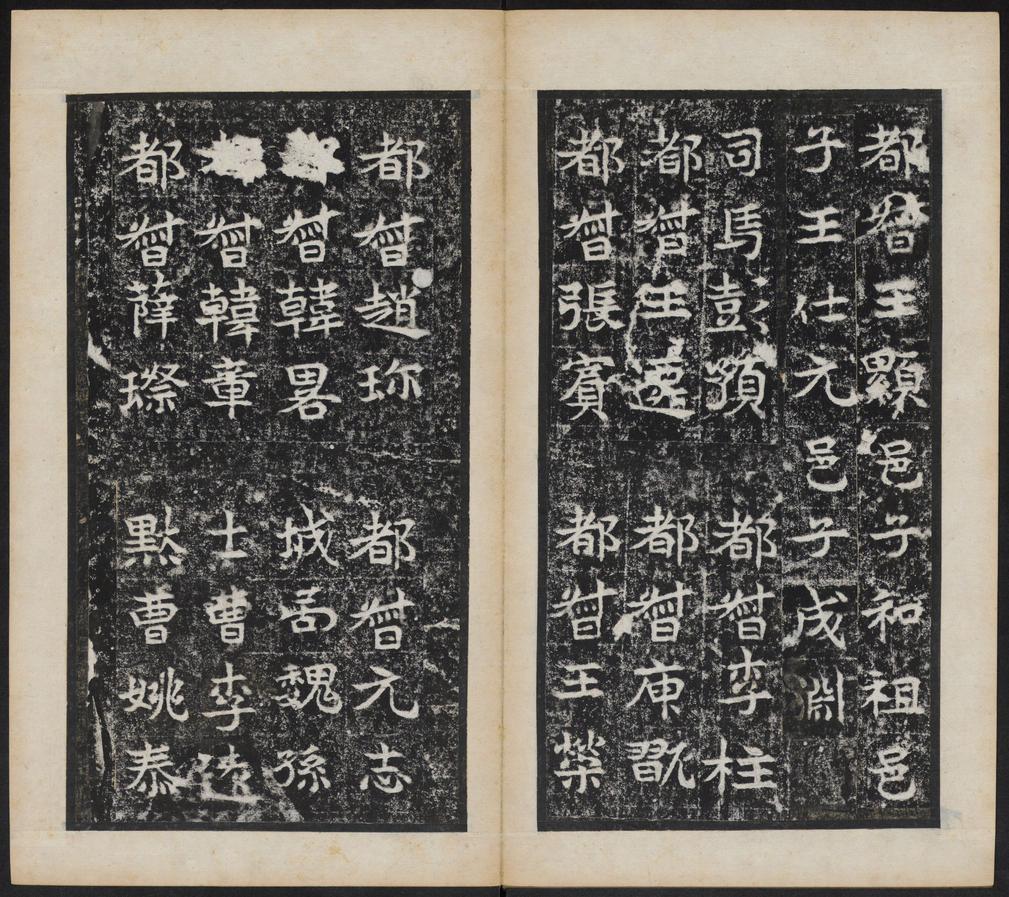 都督王顯邑子和祖邑
子王仕元邑子成淵
司馬彭須 都督李柱
都督王邕 都督庾翫
都督張賓 都督王榮
都督趙珎 都督元志
都督韓畧 城局魏孫
都督韓章 士曹李陵
都督薛璨 默曹姚泰